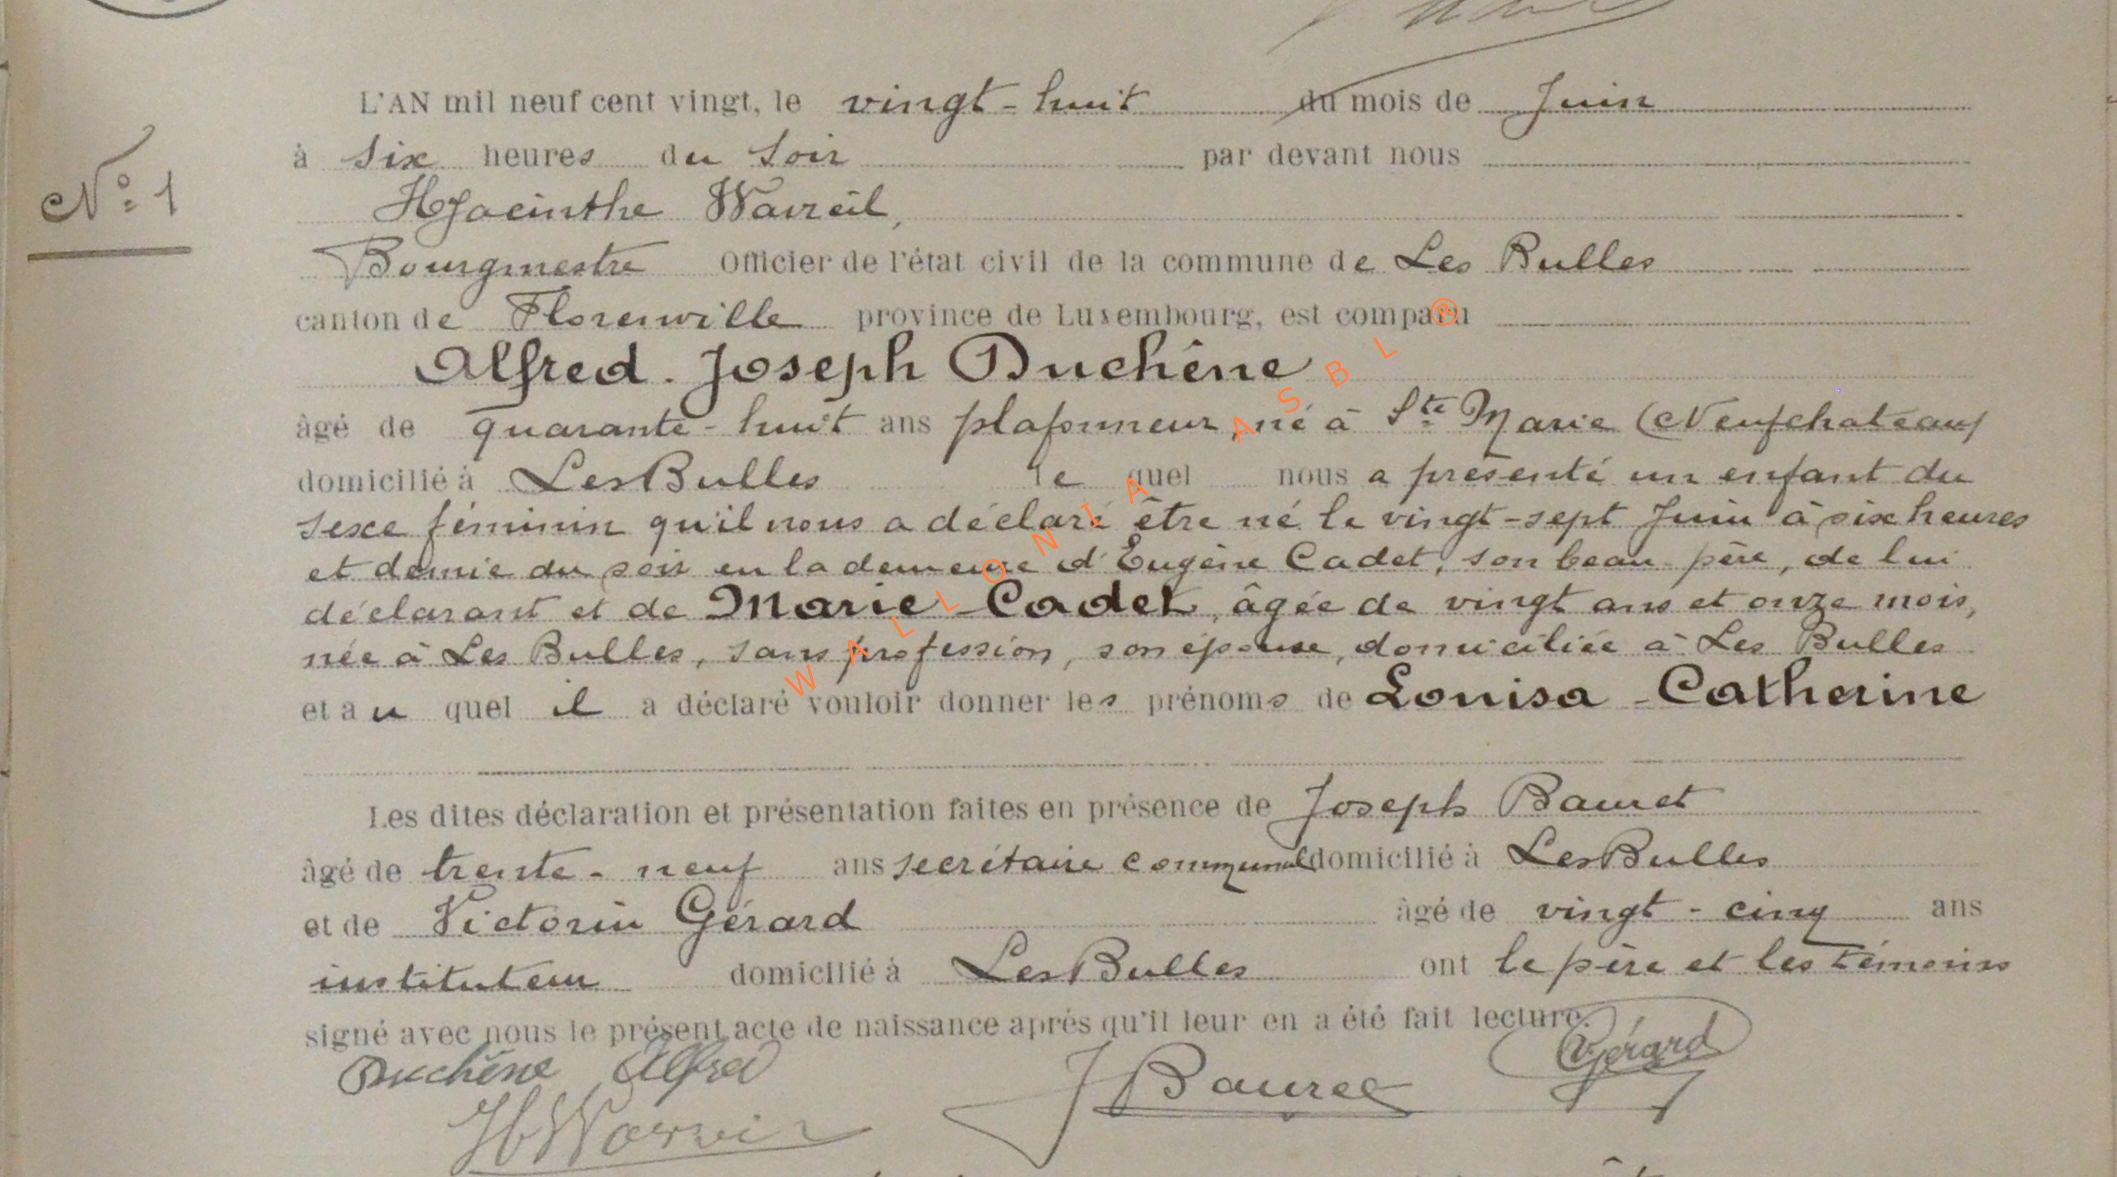 L'AN mil neuf cent vingt, le vingt-huit du mois de Juin
à six heures du soir par devant nous
N° 1
Hyacinthe
Bourgmestre Officier de l'état civil de la commune de Les Bulles
canton de Florenville province de Luxembourg, est comparu
Alfred-Joseph Duchêne
âgé de quarante-huit ans plafonneur, né à Ste Marie (Neufchateau)
domicilié à Les Bulles lequel nous a présenté un enfant du
sexe féminin qu'il nous a déclaré être né le vingt-sept Juin à six heures
et demie du soir en la demeure d'Eugène Cadet, son beau-père, de lui
déclarant et de Marie Cadet, âgée de vingt ans et onze mois,
née à Les Bulles, sans profession, son épouse, domiciliée à Les Bulles
et au quel il a déclaré vouloir donner les prénoms de Louisa-Catherine
Les dites déclaration et présentation faites en présence de Joseph
âgé de trente-neuf ans secrétaire communal domicilié à Les Bulles
et de Victorin Gérard âgé de vingt-cinq ans
instituteur domicilié à Les Bulles ont le père et les témoins
signé avec nous le présent acte de naissance après qu'il leur en a été fait lecture.
Duchêne Alfred
Gérard
WALLONIA ASBL ®